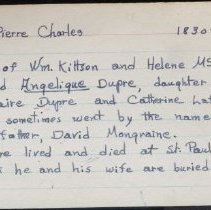 Pierre Charles 1830
of Wm. Kittson and Helene Mc
d Angelique Dupre, daughter
aire Dupre and Catherine La
sometimes went by the name
father, David Mongraine.
re lived and died at St. Paul
s he and his wife are buried